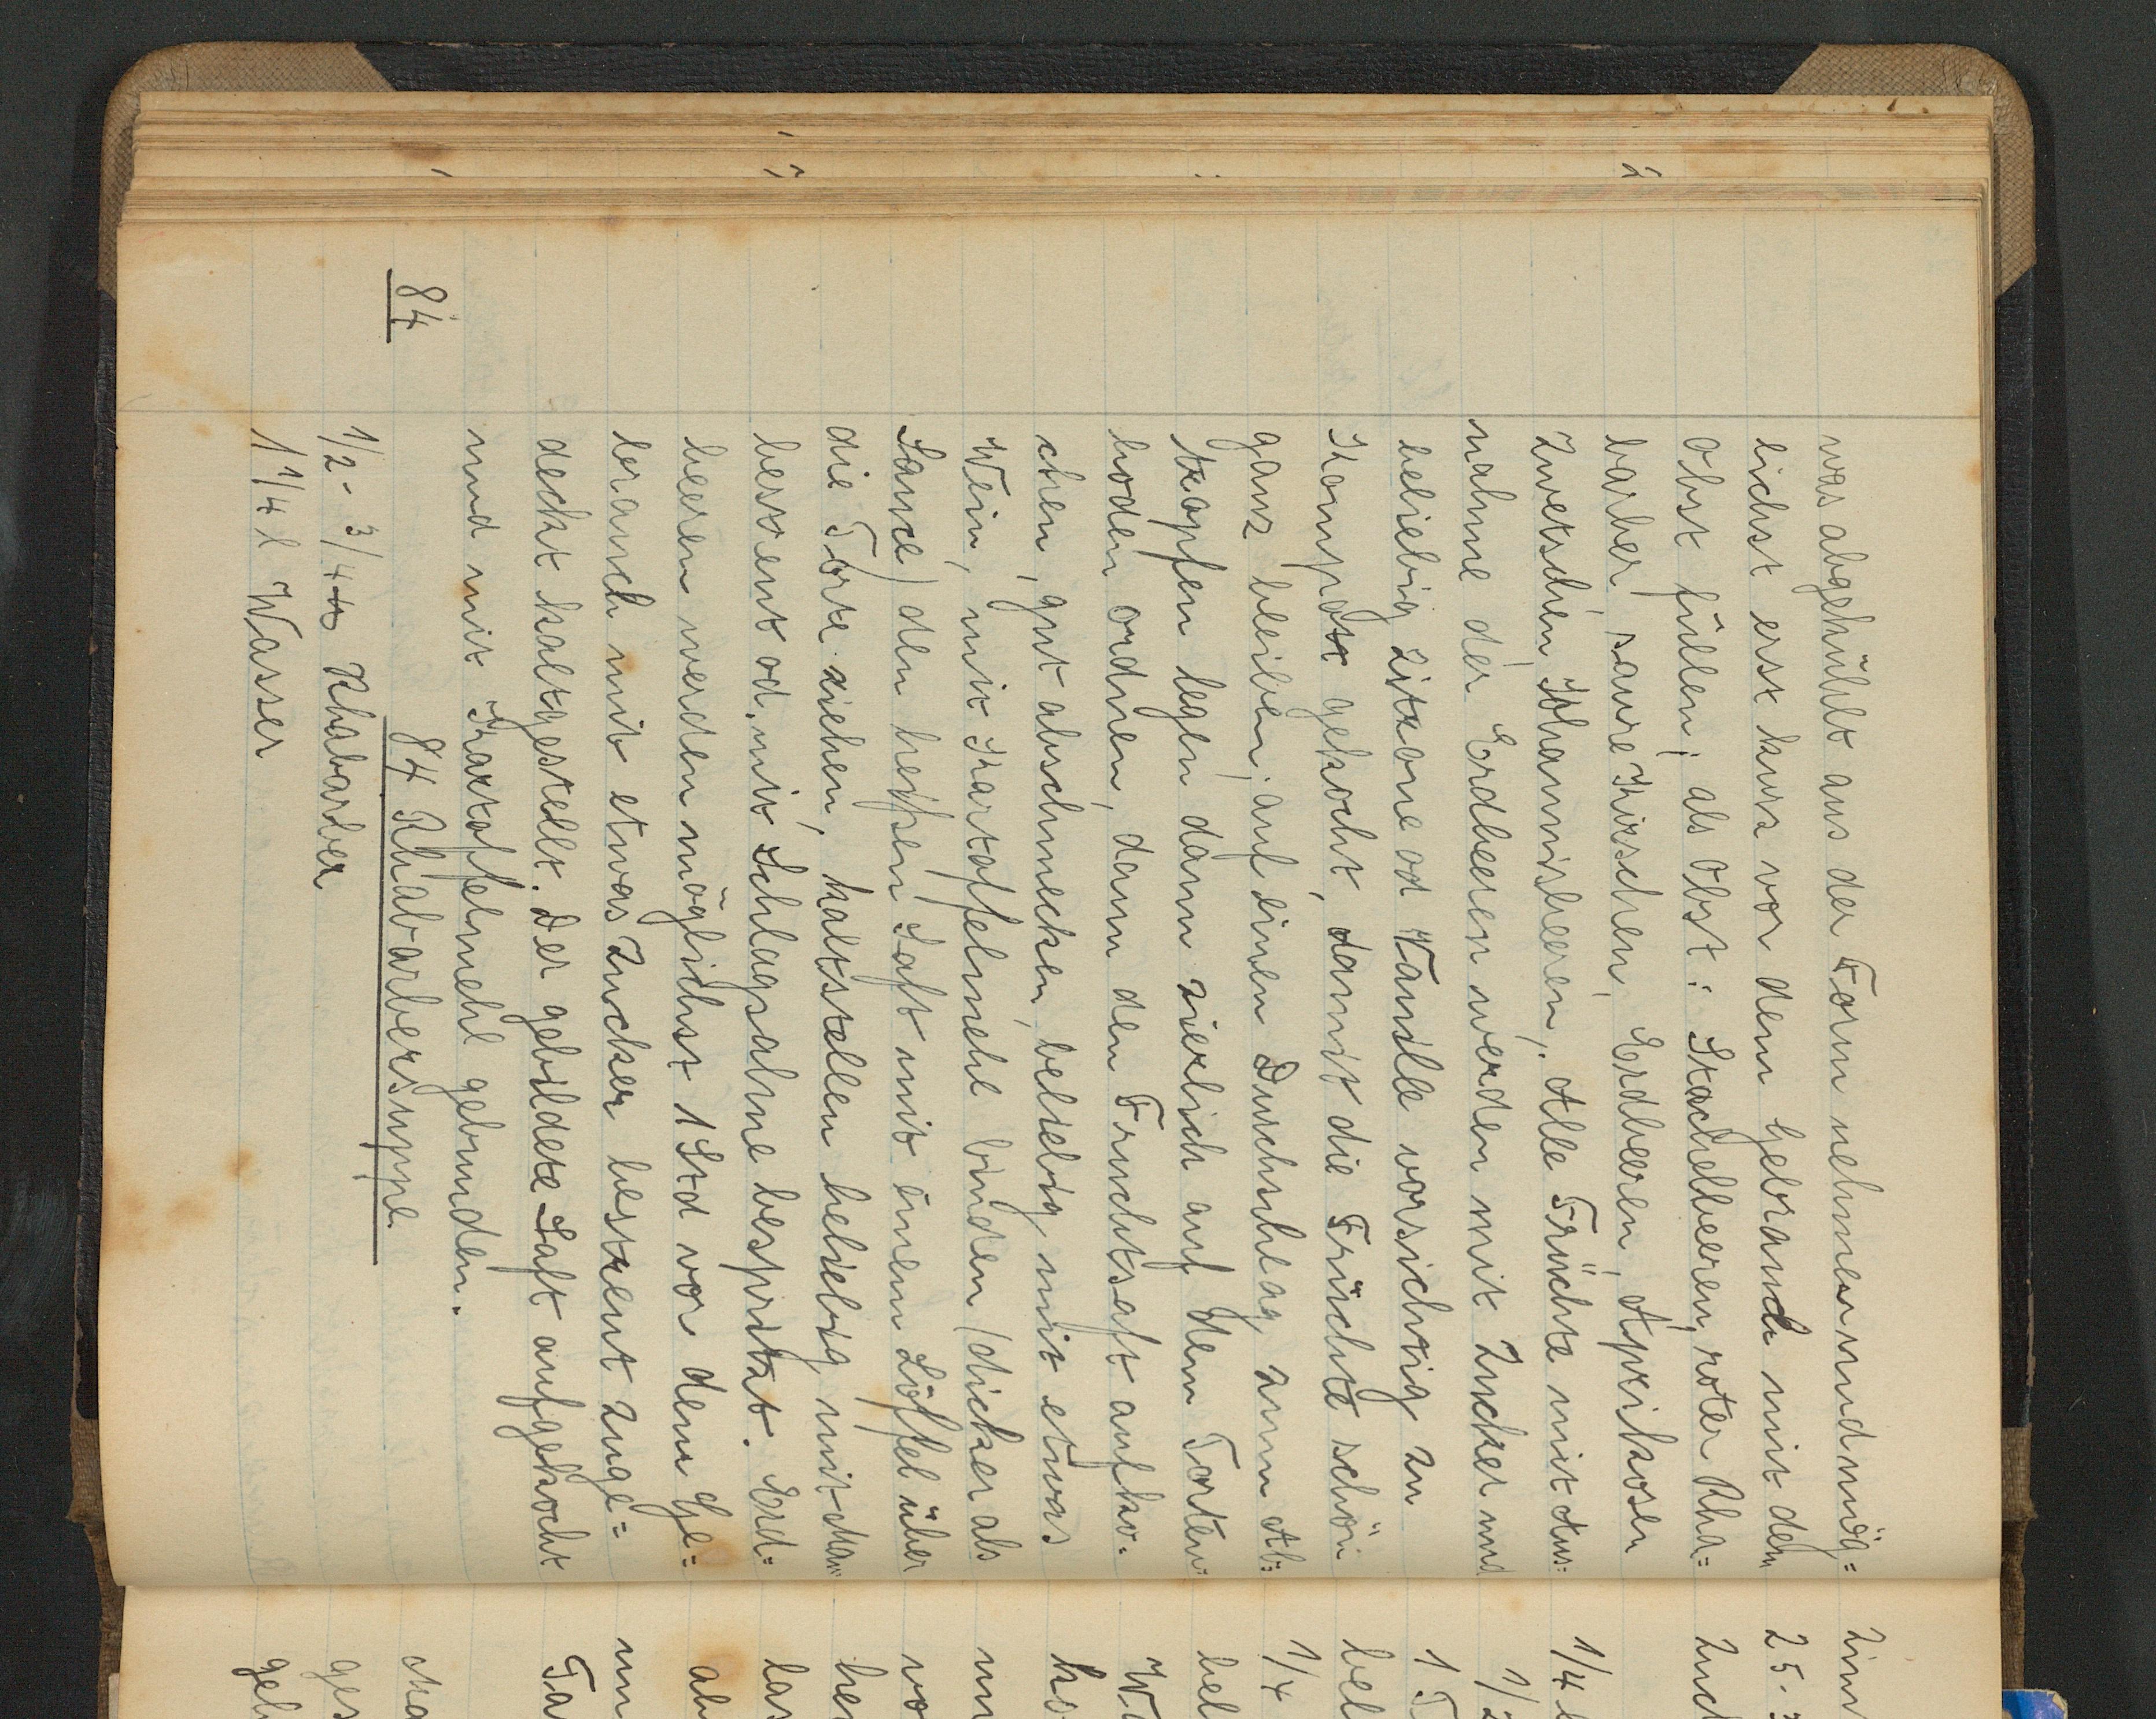 was abgekühlt aus der Form nehmen und mög=
lichst erst kurz vor dem Gebrauch mit dem
Obst füllen; als Obst: Stachelbeeren, roter Rha=
barber, saure Kirschen, Erdbeeren, Aprikosen
Zwetschen, Johannisbeeren; Alle Früchte mit Aus=
nahme der Erdbeeren werden mit Zucker und
beliebig Zitrone od Vanille vorsichtig zu
Kompott gekocht, damit die Früchte schön
ganz bleiben; auf einen Durchschlag zum Ab=
tropfen legen dann zierlich auf dem Torten=
boden ordnen, dann den Fruchtsaft aufko=
chen, gut abschmecken, beliebig mit etwas
Wein, mit Kartoffelmehl binden (dicker als
Sauce) den heißen Saft mit einem Löffel über
die Torte ziehen, kaltstellen beliebig mit Man
bestreut od. mit Schlagsahne bespritzt. Erd=
beeren werden möglichst 1 Std vor dem Ge=
brauch mit etwas Zucker bestreut zuge=
deckt kaltgestellt. Der gebildete Saft aufgekocht
und mit Kartoffelmehl gebunden.
84
84 Rhabarbersuppe
1/2 - 3/4 ℔ Rhabarber
1 1/4 l Wasser
25-3
1/4 l
1/2
1 T
1/4